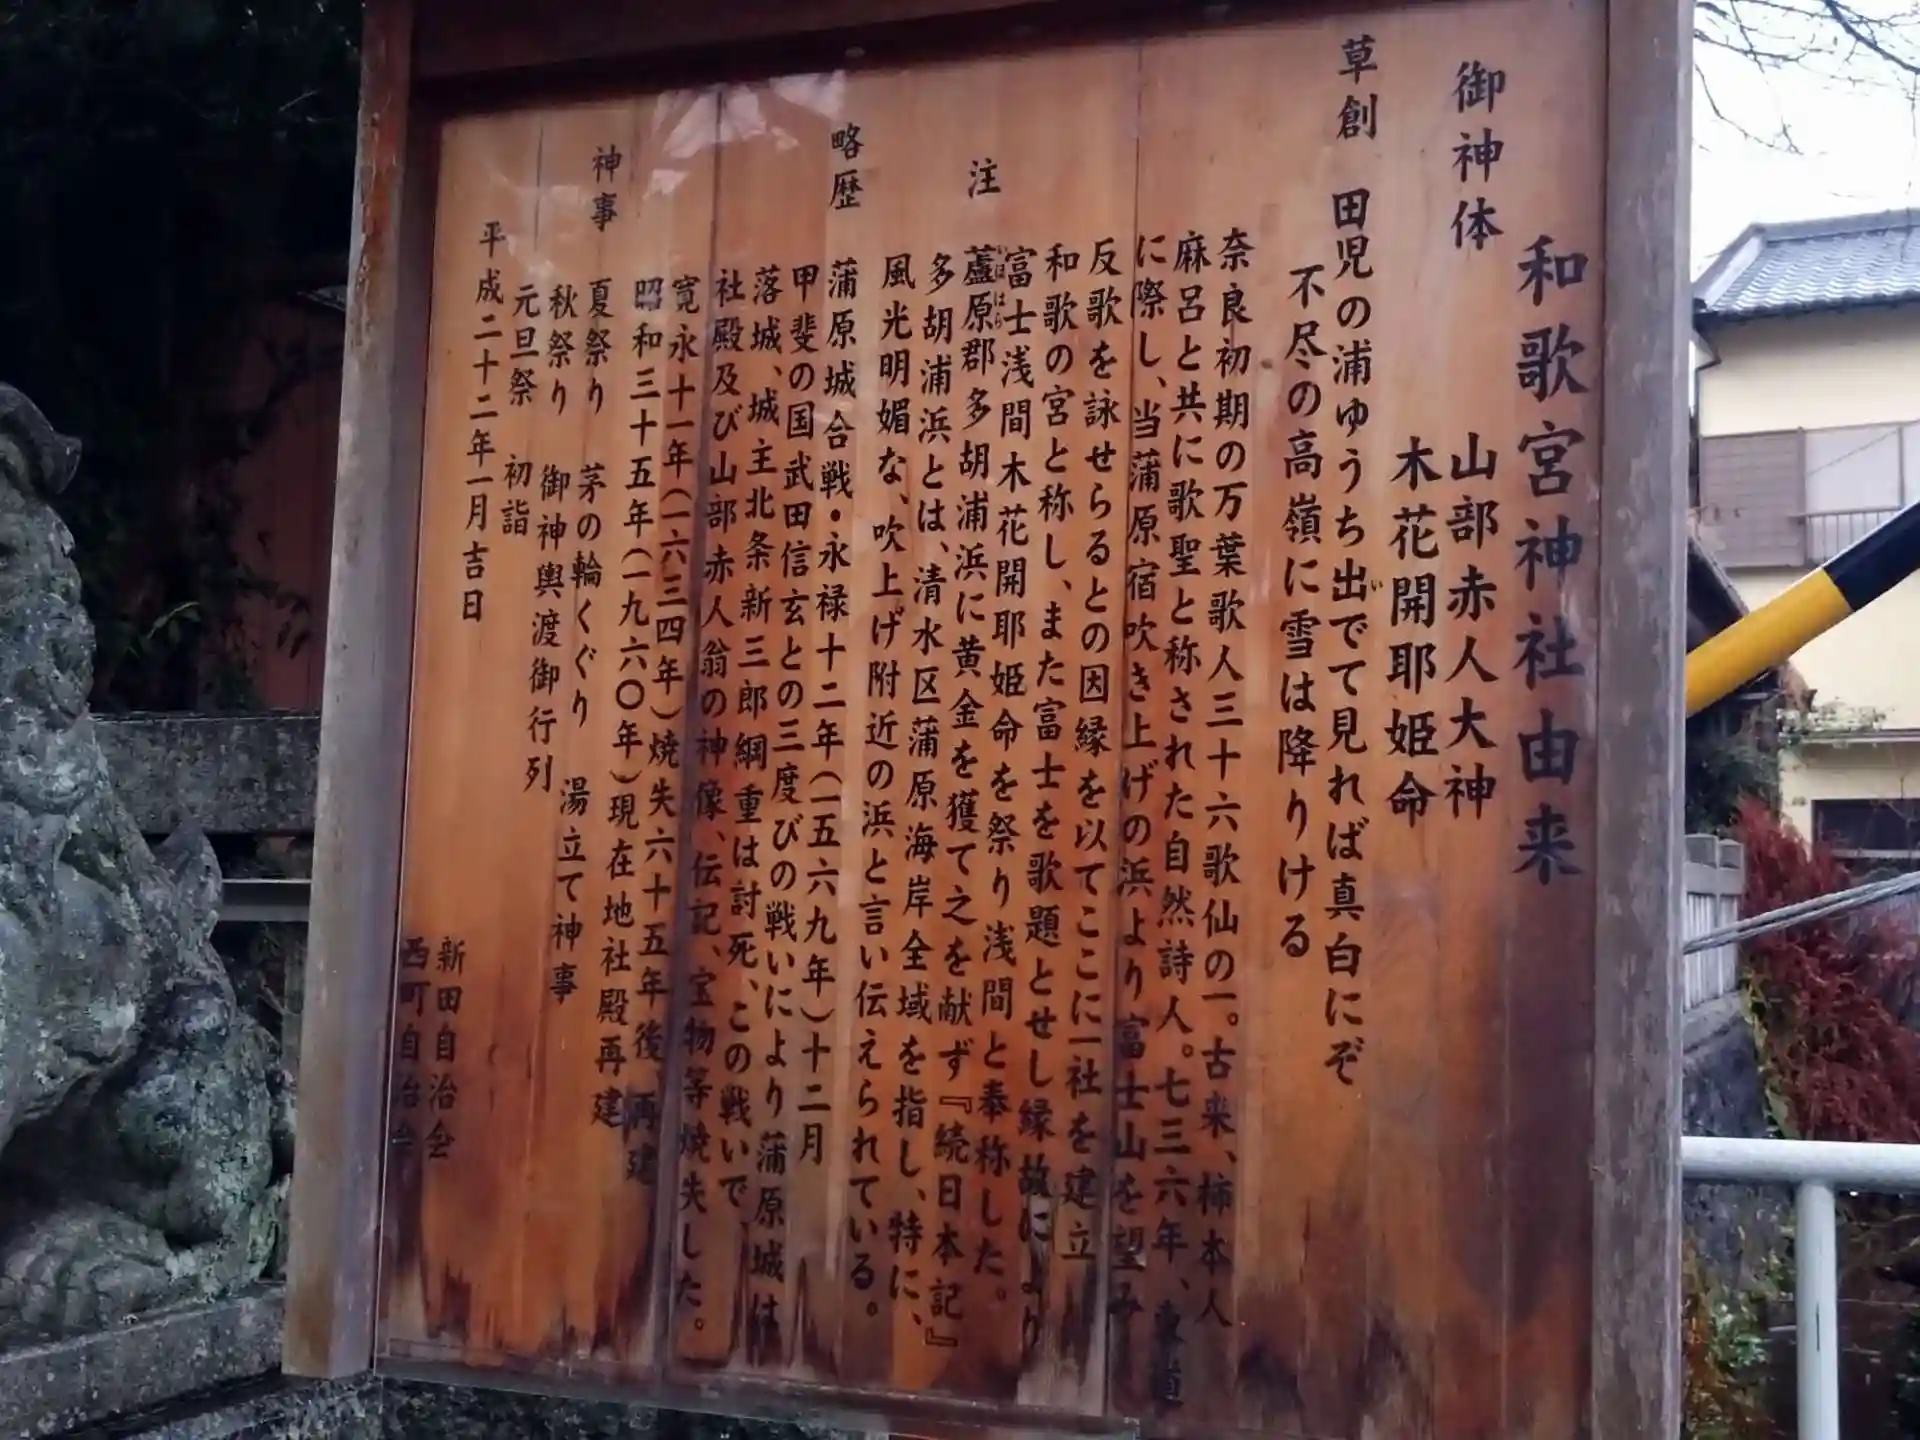 和歌宮神社由来
御神体　山部赤人大神
木花開耶姫命
草創　田児の浦ゆうち出でて見れば真白にぞ
不尽の高嶺に雪は降りける
奈良初期の万葉歌人三十六歌仙の一。古来、柿本人
麻呂と共に歌聖と称された自然詩人。七三六年、東
に際し、当蒲原宿吹き上げの浜より富士山を望み
反歌を詠せらるとの因縁を以てここに一社を建立
和歌の宮と称し、また富士を歌題とせし縁故により
富士浅間木花開耶姫命を祭り浅間と奉称した。
注　蘆原郡多胡浦浜に黄金を獲て之を献ず『続日本記』
多胡浦浜とは、清水区蒲原海岸全域を指し、特に、
風光明媚な、吹上げ附近の浜と言い伝えられている。
略歴　蒲原城合戦・永禄十二年（一五六九年）十二月
甲斐の国武田信玄との三度びの戦いにより蒲原城は
落城、城主北条新三郎綱重は討死、この戦いで、
社殿及び山部赤人翁の神像、伝記、宝物等焼失した。
寛永十一年（一六三四年）焼失六十五年後再建
昭和三十五年（一九六〇年）現在地社殿再建
神事　夏祭り　茅の輪くぐり　湯立て神事
秋祭り　御神輿渡御行列
元旦祭　初詣
平成二十二年一月吉日
新田自治会
西町自治会